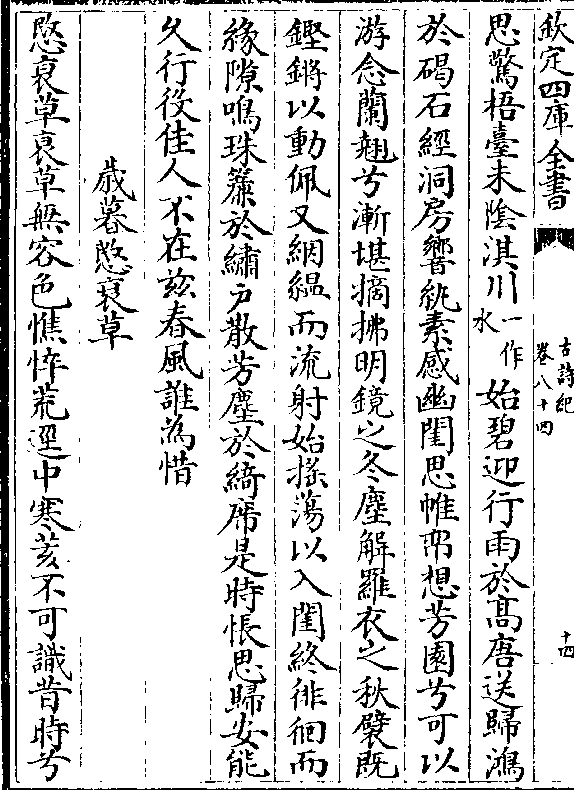 欽定四庫全書
古詩紀
卷八十四
十四
思驚梧臺未陰淇川一作水始碧迎行雨於髙唐送歸鴻
於碣石經洞房響紈素感幽閨思帷帟想芳園兮可以
游念蘭翹兮漸堪摘拂明鏡之冬塵解羅衣之秋襞既
鏗鏘以動佩又絪縕而流射始揺蕩以入閨終徘徊而
緣隙鳴珠簾於繡戶散芳塵於綺席是時悵思歸安能
久行役佳人不在兹春風誰為惜
歲暮愍衰草
愍衰草衰草無容色憔悴荒逕中寒荄不可識昔時兮